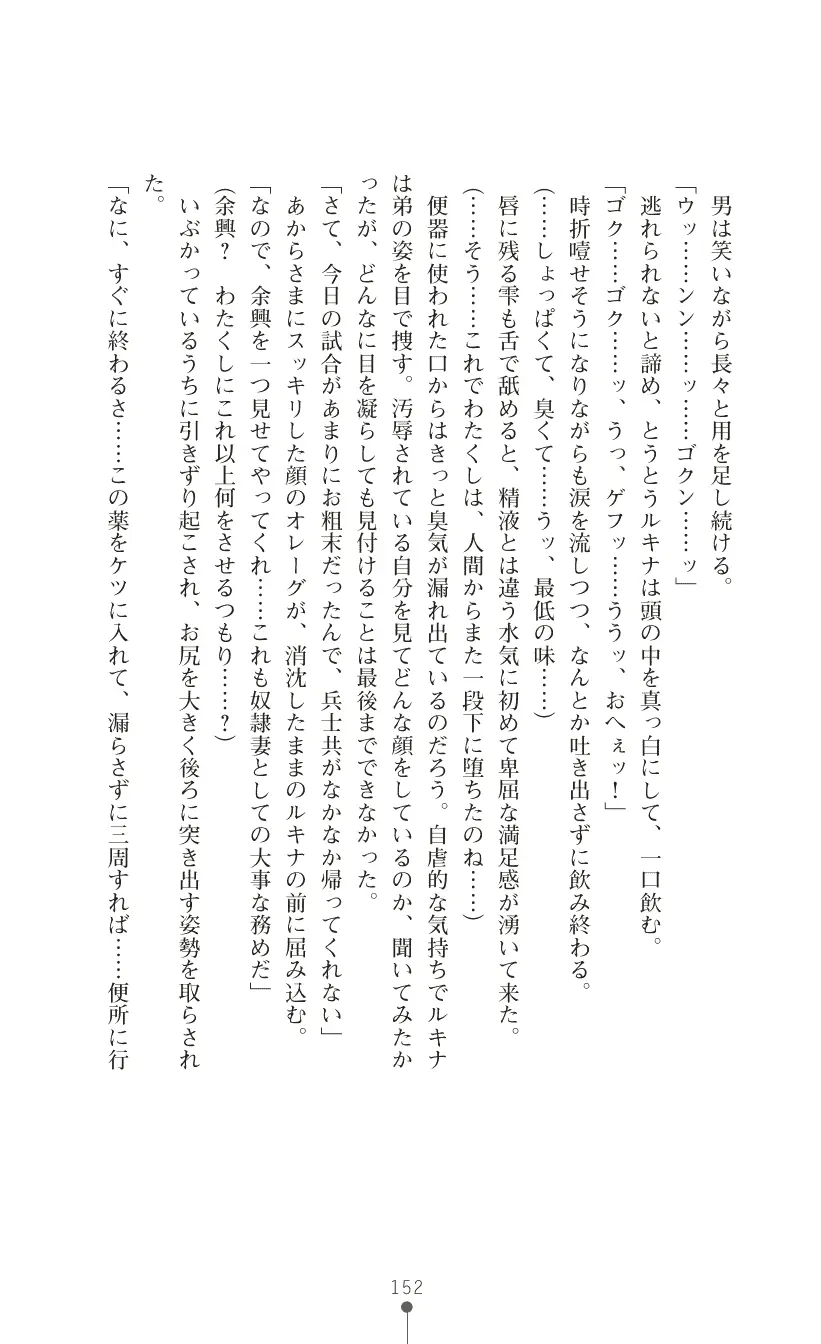 男は笑いながら長々と用を足し続ける。
「ウッ……ンン……ッ……ゴクン……ッ」
逃れられないと諦め、とうとうルキナは頭の中を真っ白にして、一口飲む。
「ゴク……ゴク……ッ、うっ、ゲフッ……ううッ、おへぇッ！」
時折噎せそうになりながらも涙を流しつつ、なんとか吐き出さずに飲み終わる。
(……しょっぱくて、臭くて……うッ、最低の味……)
唇に残る雫も舌で舐めると、精液とは違う水気に初めて卑屈な満足感が湧いて来た。
(……そう……これでわたくしは、人間からまた一段下に堕ちたのね……)
便器に使われた口からはきっと臭気が漏れ出ているのだろう。自虐的な気持ちでルキナ
は弟の姿を目で捜す。汚辱されている自分を見てどんな顔をしているのか、聞いてみたか
ったが、どんなに目を凝らしても見付けることは最後までできなかった。
「さて、今日の試合があまりにお粗末だったんで、兵士共がなかなか帰ってくれない」
あからさまにスッキリした顔のオレーグが、消沈したままのルキナの前に屈み込む。
「なので、余興を一つ見せてやってくれ……これも奴隷妻としての大事な務めだ」
(余興？　わたくしにこれ以上何をさせるつもり……？)
いぶかっているうちに引きずり起こされ、お尻を大きく後ろに突き出す姿勢を取らされ
た。
「なに、すぐに終わるさ……この薬をケツに入れて、漏らさずに三周すれば……便所に行
152